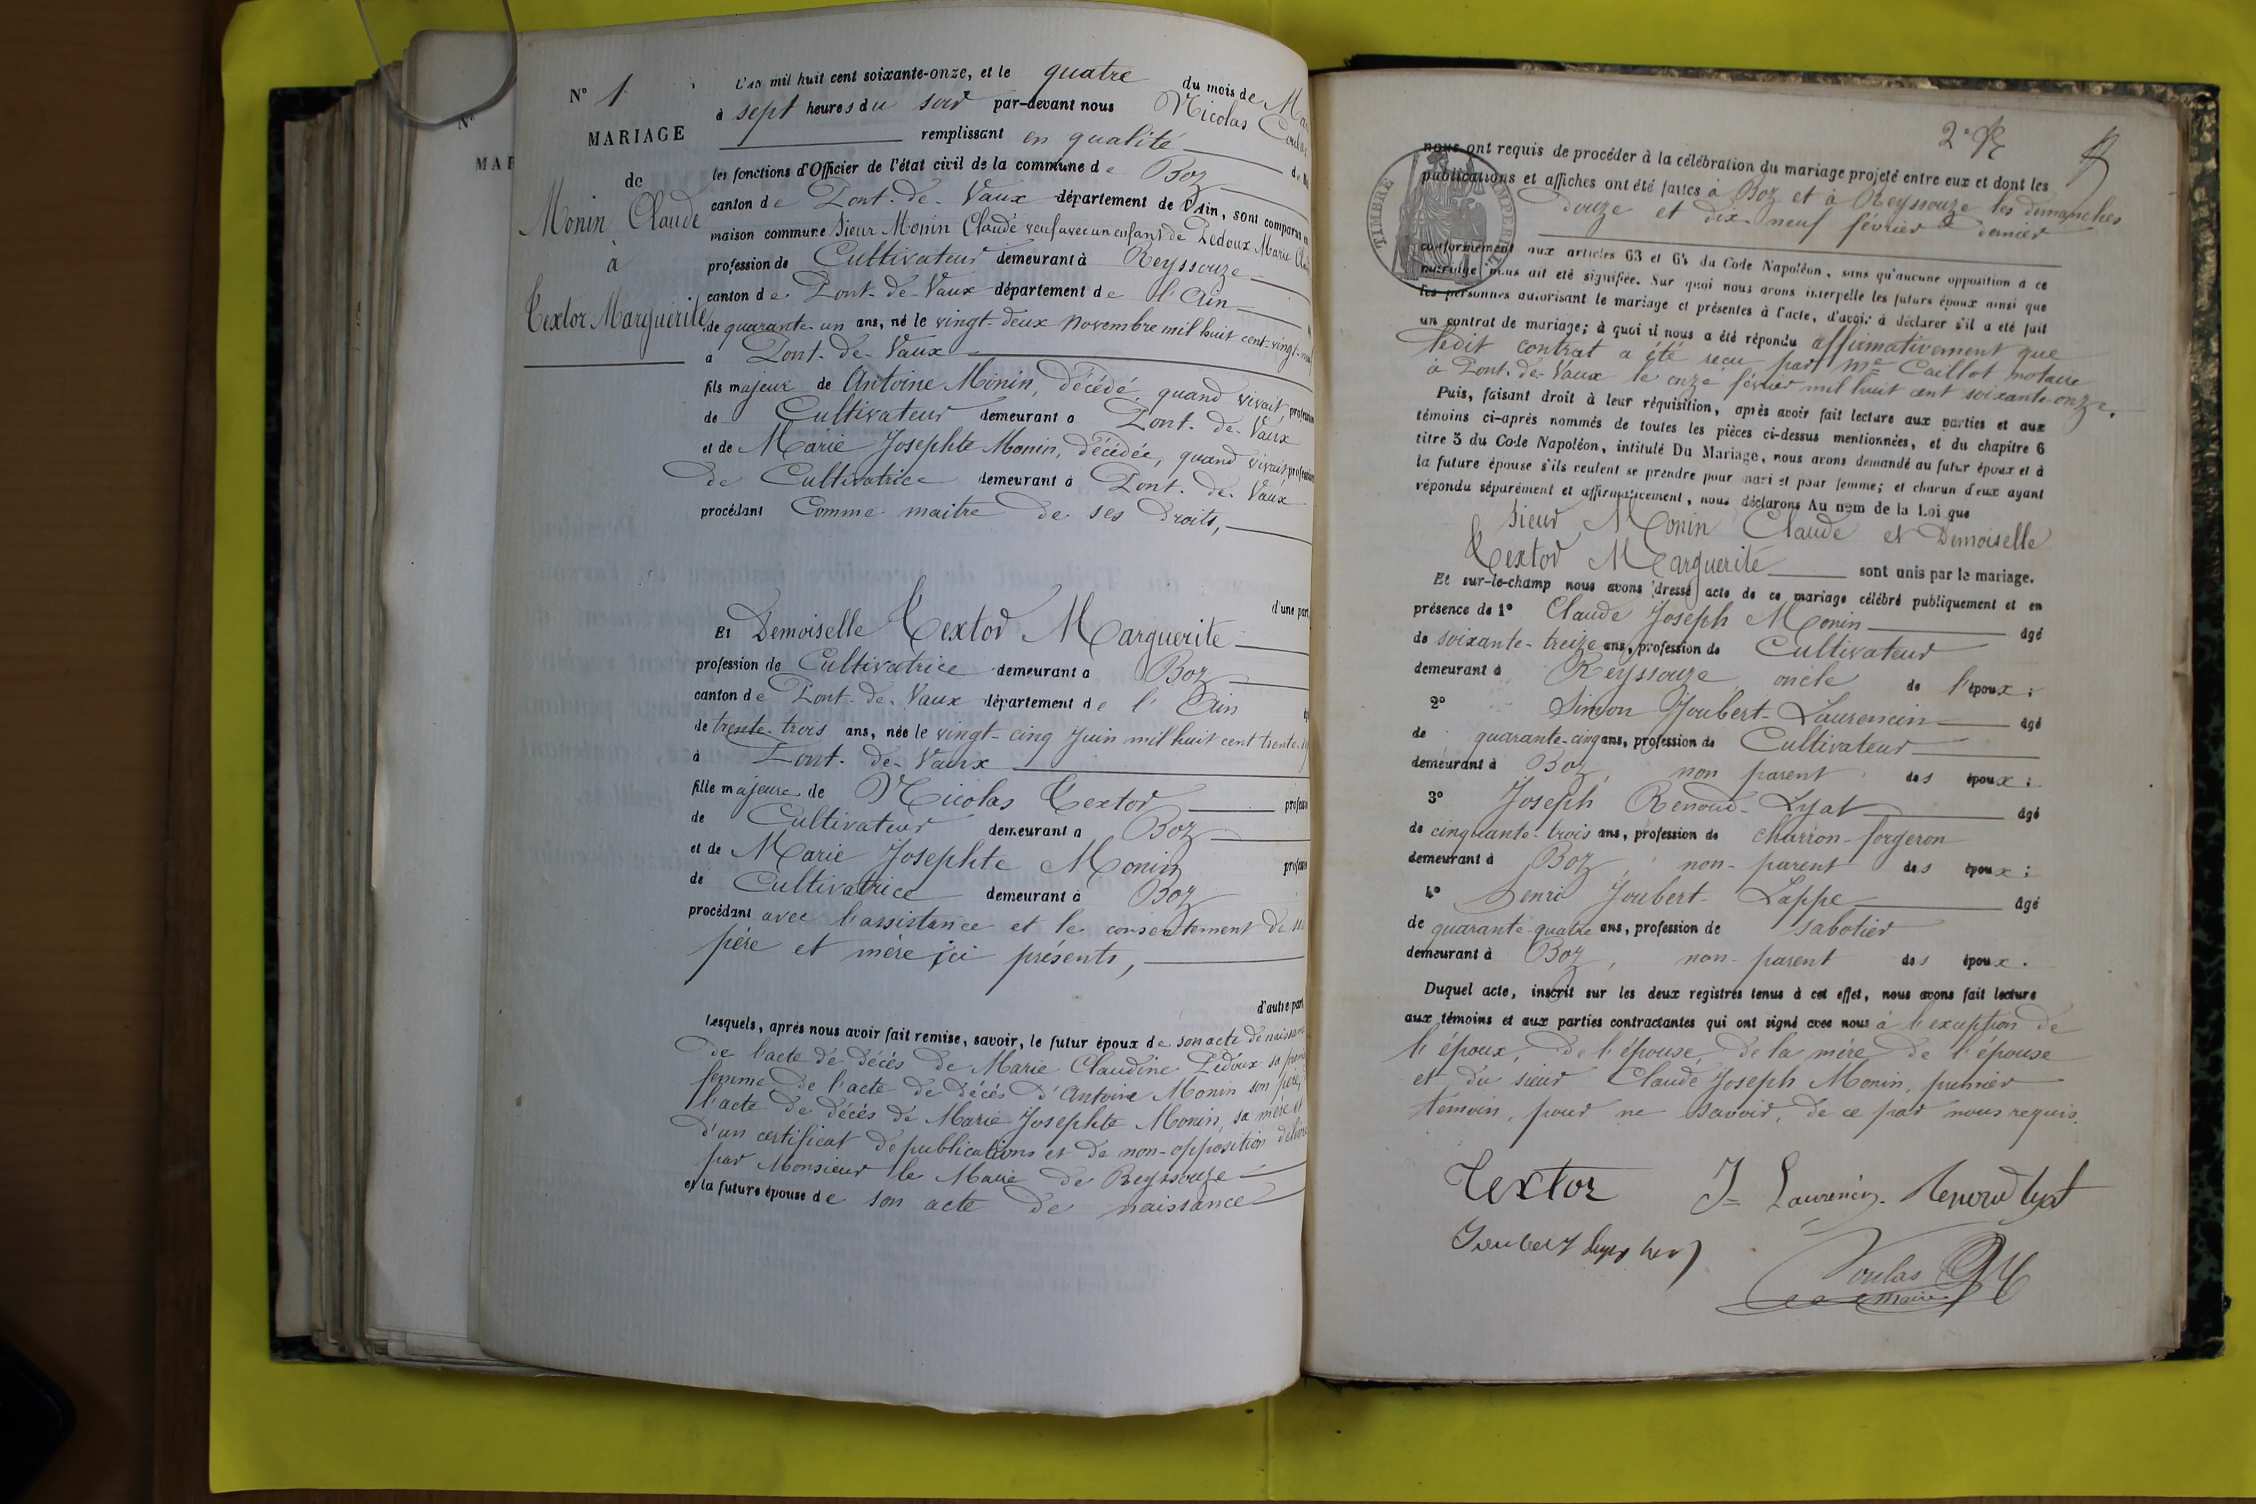 N° 1
MARIAGE
de
Monin Claude
à
Textor Marguerite
L'an mil huit cent soixante-onze, et le quatre du mois de
à sept heures du soir par-devant nous Nicolas
remplissant en qualité
les fonctions d'Officier de l'état civil de la commune de Boz
canton de Pont-de-Vaux département de l'Ain, sont comparus en
maison commune Sieur Monin Claude veuf avec un enfant de Pedoux Marie
profession de Cultivateur demeurant à Reyssouze
canton de Pont-de-Vaux département de l'Ain
de quarante-un ans, né le vingt-deux novembre mil huit cent-vingt-
à Pont-de-Vaux
fils majeur de Antoine Monin, décédé, quand vivait profession
de Cultivateur demeurant à Pont-de-Vaux
et de Marie Josephte Monin, décédée, quand vivait profession
de Cultivatrice demeurant à Pont-de-Vaux
procédant Comme maitre de ses droits,
d'une part
Et Demoiselle Textor Marguerite
profession de Cultivatrice demeurant à Boz
canton de Pont-de-Vaux département de l'Ain
de trente-trois ans, née le vingt-cinq Juin mil huit cent trente-
à Pont-de-Vaux
fille majeure de Nicolas Textor profession
de Cultivateur demeurant à Boz
et de Marie Josephte Monin profession
de Cultivatrice demeurant à Boz
procédant avec l'assistance et le consentement de
père et mère ici présents,
d'autre part
Lesquels, après nous avoir fait remise, savoir, le futur époux de son acte de naissance
de l'acte de décès de Marie Claudine Pedoux sa
femme de l'acte de décès d'Antoine Monin son père,
l'acte de décès de Marie Josephte Monin, sa mère et
d'un certificat de publications et de non-opposition délivré
par Monsieur le Maire de Reyssouze
et la future épouse de son acte de naissance
N°
MAR
2e
TIMBRE IMPERIAL
nous ont requis de procéder à la célébration du mariage projeté entre eux et dont les
publications et affiches ont été faites à Boz et à Reyssouze les dimanches
douze et dix-neuf février dernier
conformément aux articles 63 et 64 du Code Napoléon, sans qu'aucune opposition à ce
mariage nous ait été signifiée. Sur quoi nous avons interpellé les futurs époux ainsi que
les personnes autorisant le mariage et présentes à l'acte, d'avoir à déclarer s'il a été fait
un contrat de mariage; à quoi il nous a été répondu affirmativement que
ledit contrat a été reçu par Me Caillot notaire
à Pont-de-Vaux le onze février mil huit cent soixante-onze.
Puis, faisant droit à leur réquisition, après avoir fait lecture aux parties et aux
témoins ci-après nommés de toutes les pièces ci-dessus mentionnées, et du chapitre 6
titre 5 du Code Napoléon, intitulé Du Mariage, nous avons demandé au futur époux et à
la future épouse s'ils veulent se prendre pour mari et pour femme; et chacun d'eux ayant
répondu séparément et affirmativement, nous déclarons Au nom de la Loi que
Sieur Monin Claude et Demoiselle
Textor Marguerite sont unis par le mariage.
Et sur-le-champ nous avons dressé acte de ce mariage célébré publiquement et en
présence de 1° Claude Joseph Monin âgé
de soixante-treize ans, profession de Cultivateur
demeurant à Reyssouze oncle de l'époux;
2° Simon Joubert-Laurencin âgé
de quarante-cinq ans, profession de Cultivateur
demeurant à Boz, non parent des époux;
3° Joseph Renoud-Lyat âgé
de cinquante-trois ans, profession de charron-forgeron
demeurant à Boz, non-parent des époux;
4° Henri Joubert-Lappe âgé
de quarante-quatre ans, profession de sabotier
demeurant à Boz, non-parent des époux.
Duquel acte, inscrit sur les deux registres tenus à cet effet, nous avons fait lecture
aux témoins et aux parties contractantes qui ont signé avec nous à l'exception de
l'époux, de l'épouse, de la mère de l'épouse
et du sieur Claude Joseph Monin, premier
témoin, pour ne savoir, de ce par nous requis.
Textor J= Laurencin Renoud Lyat
Joubert
maire